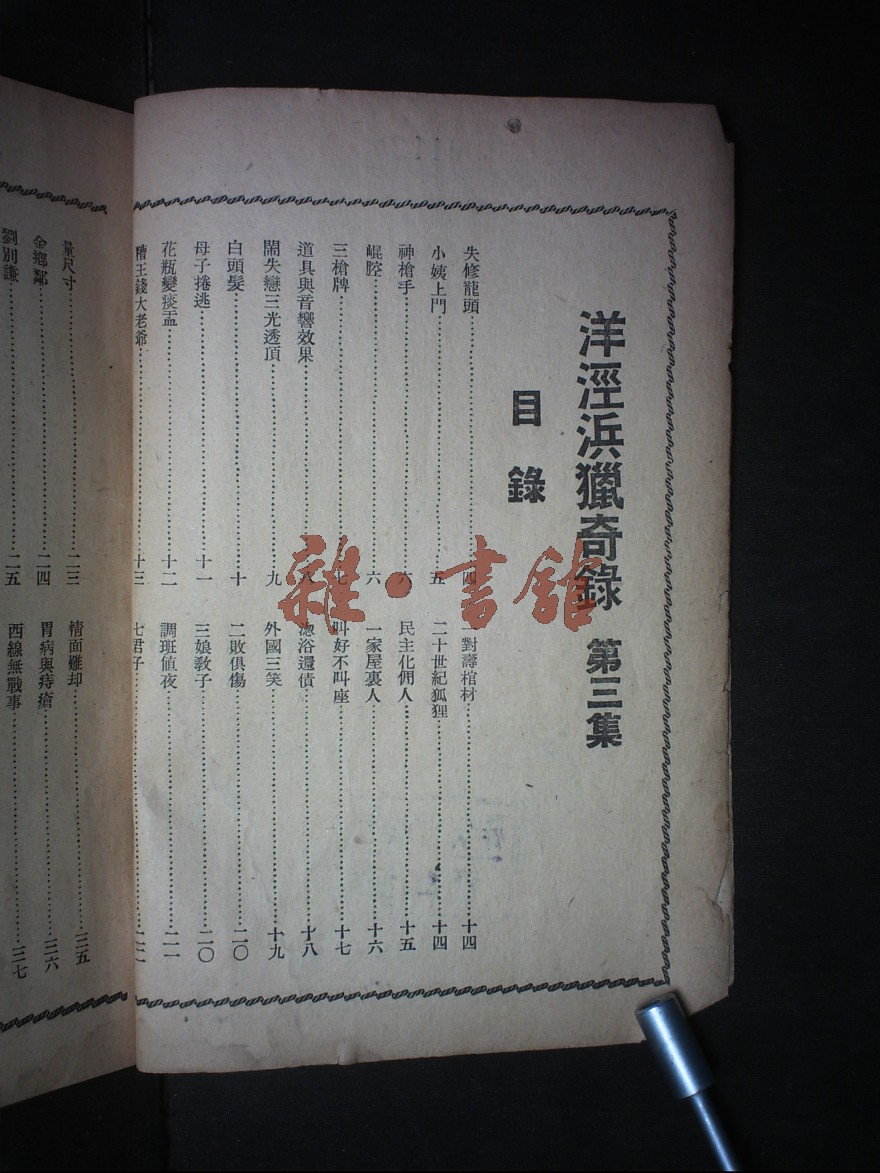 洋涇浜獵奇錄 第三集
目錄
失修龍頭……四
小姨上門……五
神槍手……六
崐腔……六
三槍牌……七
道具與音響效果……八
鬧失戀三光透頂……九
白頭髮……十
母子捲逃……十一
花瓶變痰盂……十二
糟王錢大老爺……十三
一對壽棺材……十四
二十世紀狐狸……十四
民主化佣人……十五
一家屋裏人……十六
叫好不叫座……十七
浴還債……十八
外國三笑……十九
二敗俱傷……二〇
三娘教子……二〇
調班值夜……二一
七君子……二二
量尺寸……二三
金鄉鄰……二四
劉別謙……二五
情面難却……三五
胃病與痔瘡……三六
西線無戰事……三七
雜·書館